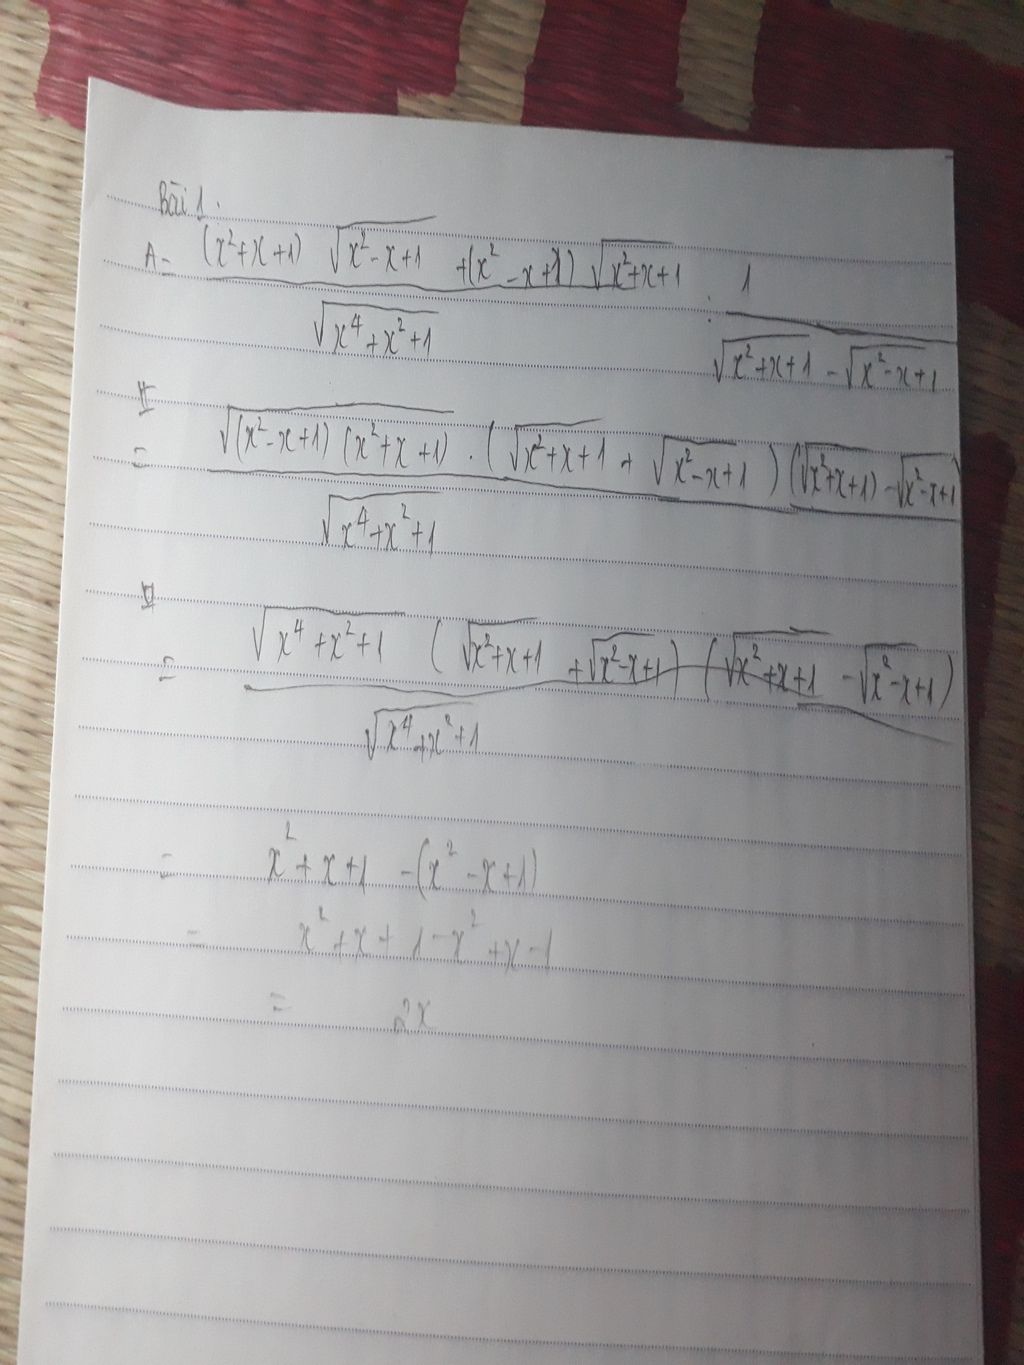 Bài 1.
A = (x² + x + 1) √(x² - x + 1) + (x² - x + 1) √(x² + x + 1) : 1
√(x⁴ + x² + 1) √(x² + x + 1) - √(x² - x + 1)
= √((x² - x + 1) (x² + x + 1)) . (√(x² + x + 1) + √(x² - x + 1)) (√(x² + x + 1) - √(x² - x + 1))
√(x⁴ + x² + 1)
= √(x⁴ + x² + 1) (√(x² + x + 1) + √(x² - x + 1)) (√(x² + x + 1) - √(x² - x + 1))
√(x⁴ + x² + 1)
= x² + x + 1 - (x² - x + 1)
= x² + x + 1 - x² + x - 1
= 2x